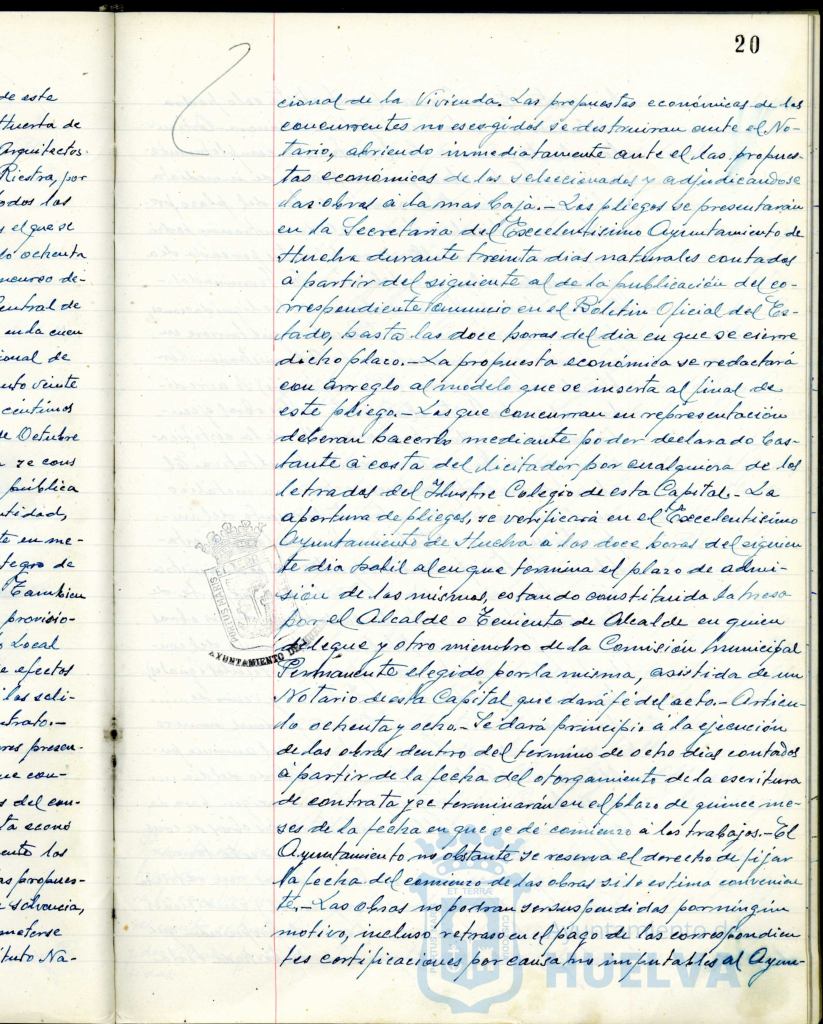 20
de este
Huerta de
Arquitectos.
Riestra, por
todos los
s el que se
lo ochenta
ncurso de-
Central de
en la cuen
ional de
ento veinte
céntimos
de Octubre
se cons
pública
ntidad,
te en me-
tegro de
Tambien
provisio-
Local
e efectos
los seli-
ntrato.-
res presen-
ue con-
s del con-
ta econó
ente los
as propues-
solvencia,
meterse
tuto Na-
cional de la Vivienda. Las propuestas económicas de los
concurrentes no escogidos se destruiran ante el No-
tario, abriendo inmediatamente ante el las propues-
tas económicas de los seleccionados y adjudicandose
las obras á la mas baja.- Los pliegos se presentarán
en la Secretaria del Excelentisimo Ayuntamiento de
Huelva durante treinta dias naturales contados
á partir del siguiente al de la publicación del co-
rrespondiente anuncio en el Boletin Oficial del Es-
tado, hasta las doce horas del dia en que se cierre
dicho plazo.- La propuesta económica se redactará
con arreglo al modelo que se inserta al final de
este pliego.- Los que concurran en representación
deberan hacerlo mediante poder declarado bas-
tante á costa del licitador por cualquiera de los
letrados del Ilustre Colegio de esta Capital.- La
apertura de pliegos, se verificará en el Excelentisimo
Ayuntamiento de Huelva á las doce horas del siguien
te dia habil al en que termina el plazo de admi-
sión de los mismos, estando constituida la mesa
por el Alcalde o Teniente de Alcalde en quien
delegue y otro miembro de la Comisión Municipal
Permanente elegido por la misma, asistida de un
Notario de esta Capital que dará fé del acto.- Articu-
lo ochenta y ocho.- Se dará principio á la ejecución
de las obras dentro del termino de ocho dias contados
á partir de la fecha del otorgamiento de la escritura
de contrata y se terminaran en el plazo de quince me-
ses de la fecha en que se dé comienzo á los trabajos.- El
Ayuntamiento no obstante se reserva el derecho de fijar
la fecha del comienzo de las obras si lo estima convenien
te.- Las obras no podran ser suspendidas por ningún
motivo, incluso retraso en el pago de las correspondien
tes certificaciones por causa no imputables al Ayun-
AYUNTAMIENTO DE
PORTUS MARIS
Ayuntamiento de
HUELVA